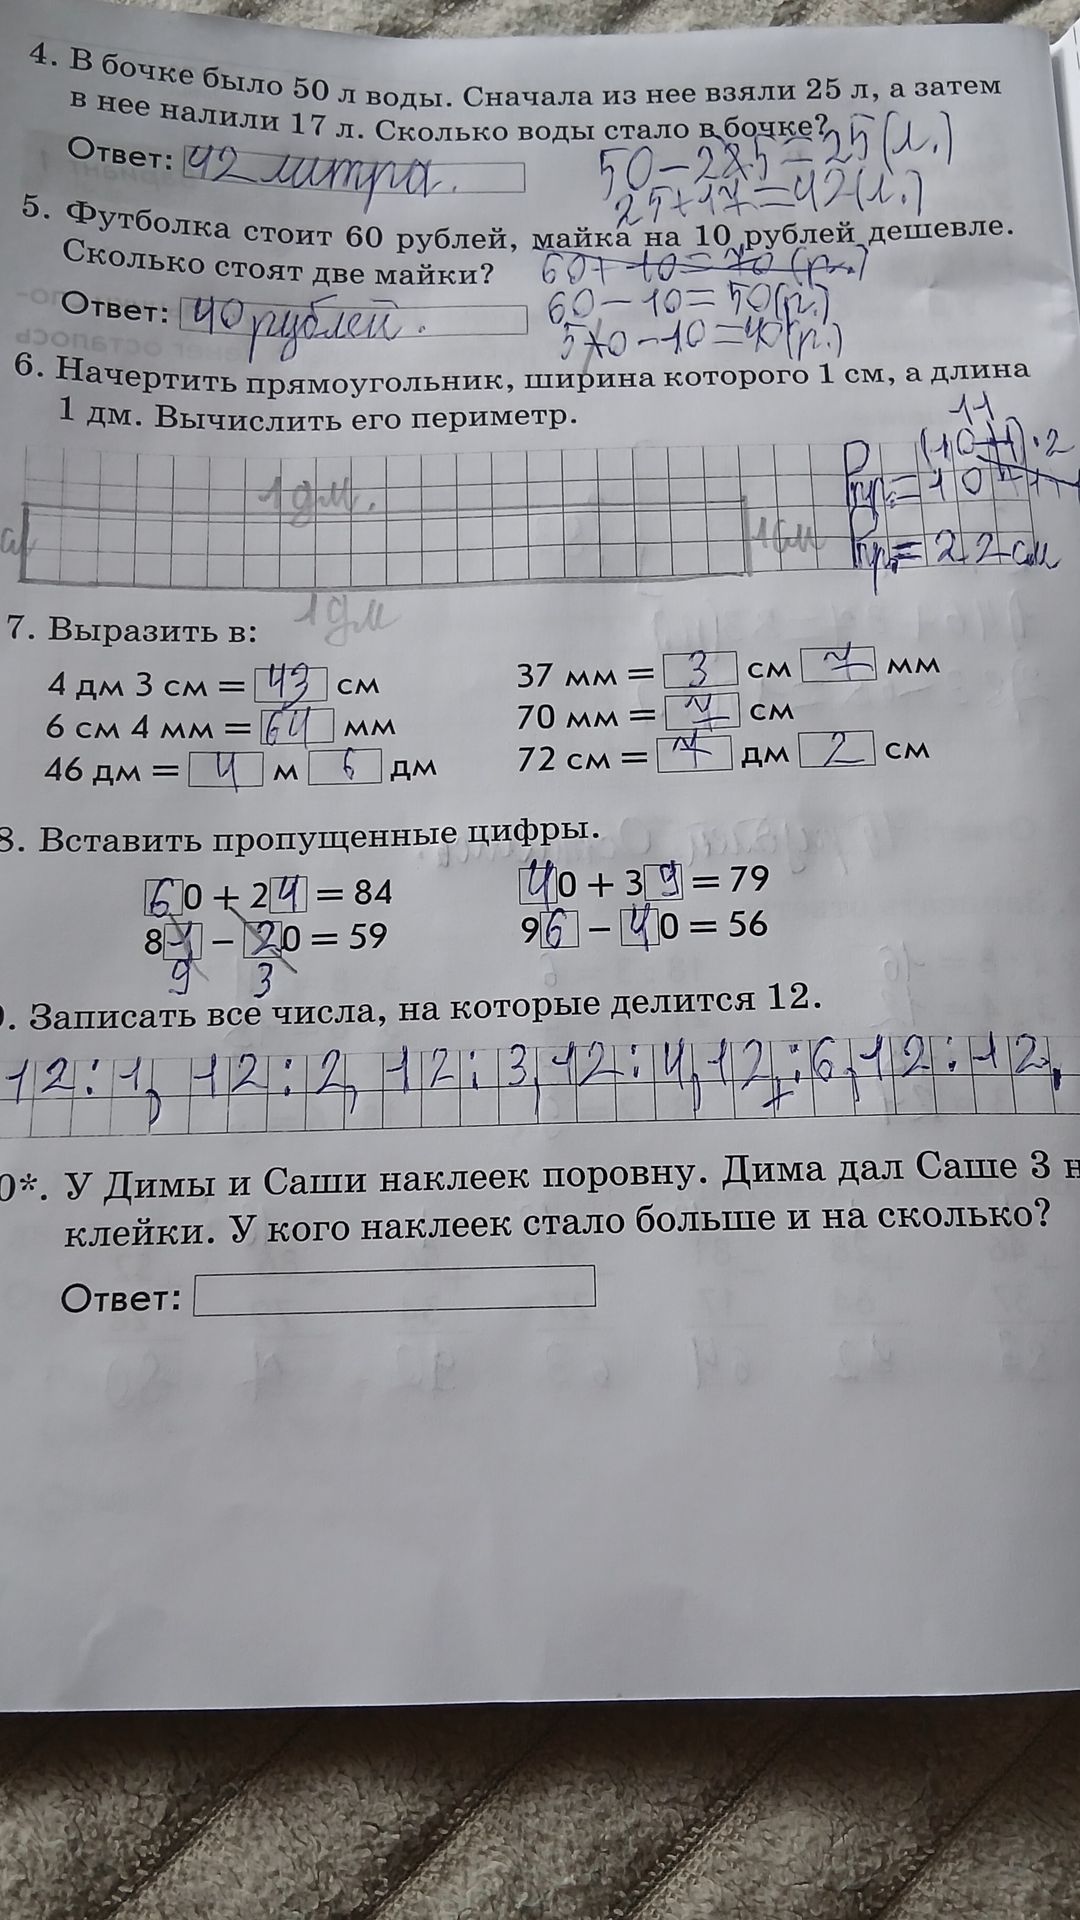 4. В бочке было 50 л воды. Сначала из нее взяли 25 л, а затем
в нее налили 17 л. Сколько воды стало в бочке?
Ответ: 42 литра.
50-25=25(л.)
25+17=42(л.)
5. Футболка стоит 60 рублей, майка на 10 рублей дешевле.
Сколько стоят две майки?
60+10=70(р.)
Ответ: 40 рублей.
60-10=50(р.)
50-10=40(р.)
6. Начертить прямоугольник, ширина которого 1 см, а длина
1 дм. Вычислить его периметр.
11
(10+1)·2
1дм.
Pпр.=10+1+
1см
Pпр.=22см
1дм
7. Выразить в:
4 дм 3 см = 43 см
37 мм = 3 см 7 мм
6 см 4 мм = 64 мм
70 мм = 7 см
46 дм = 4 м 6 дм
72 см = 7 дм 2 см
8. Вставить пропущенные цифры.
60 + 24 = 84
40 + 39 = 79
81 - 20 = 59
96 - 40 = 56
9 3
. Записать все числа, на которые делится 12.
12:1, 12:2, 12:3, 12:4, 12:6, 12:12.
0*. У Димы и Саши наклеек поровну. Дима дал Саше 3 н
клейки. У кого наклеек стало больше и на сколько?
Ответ: